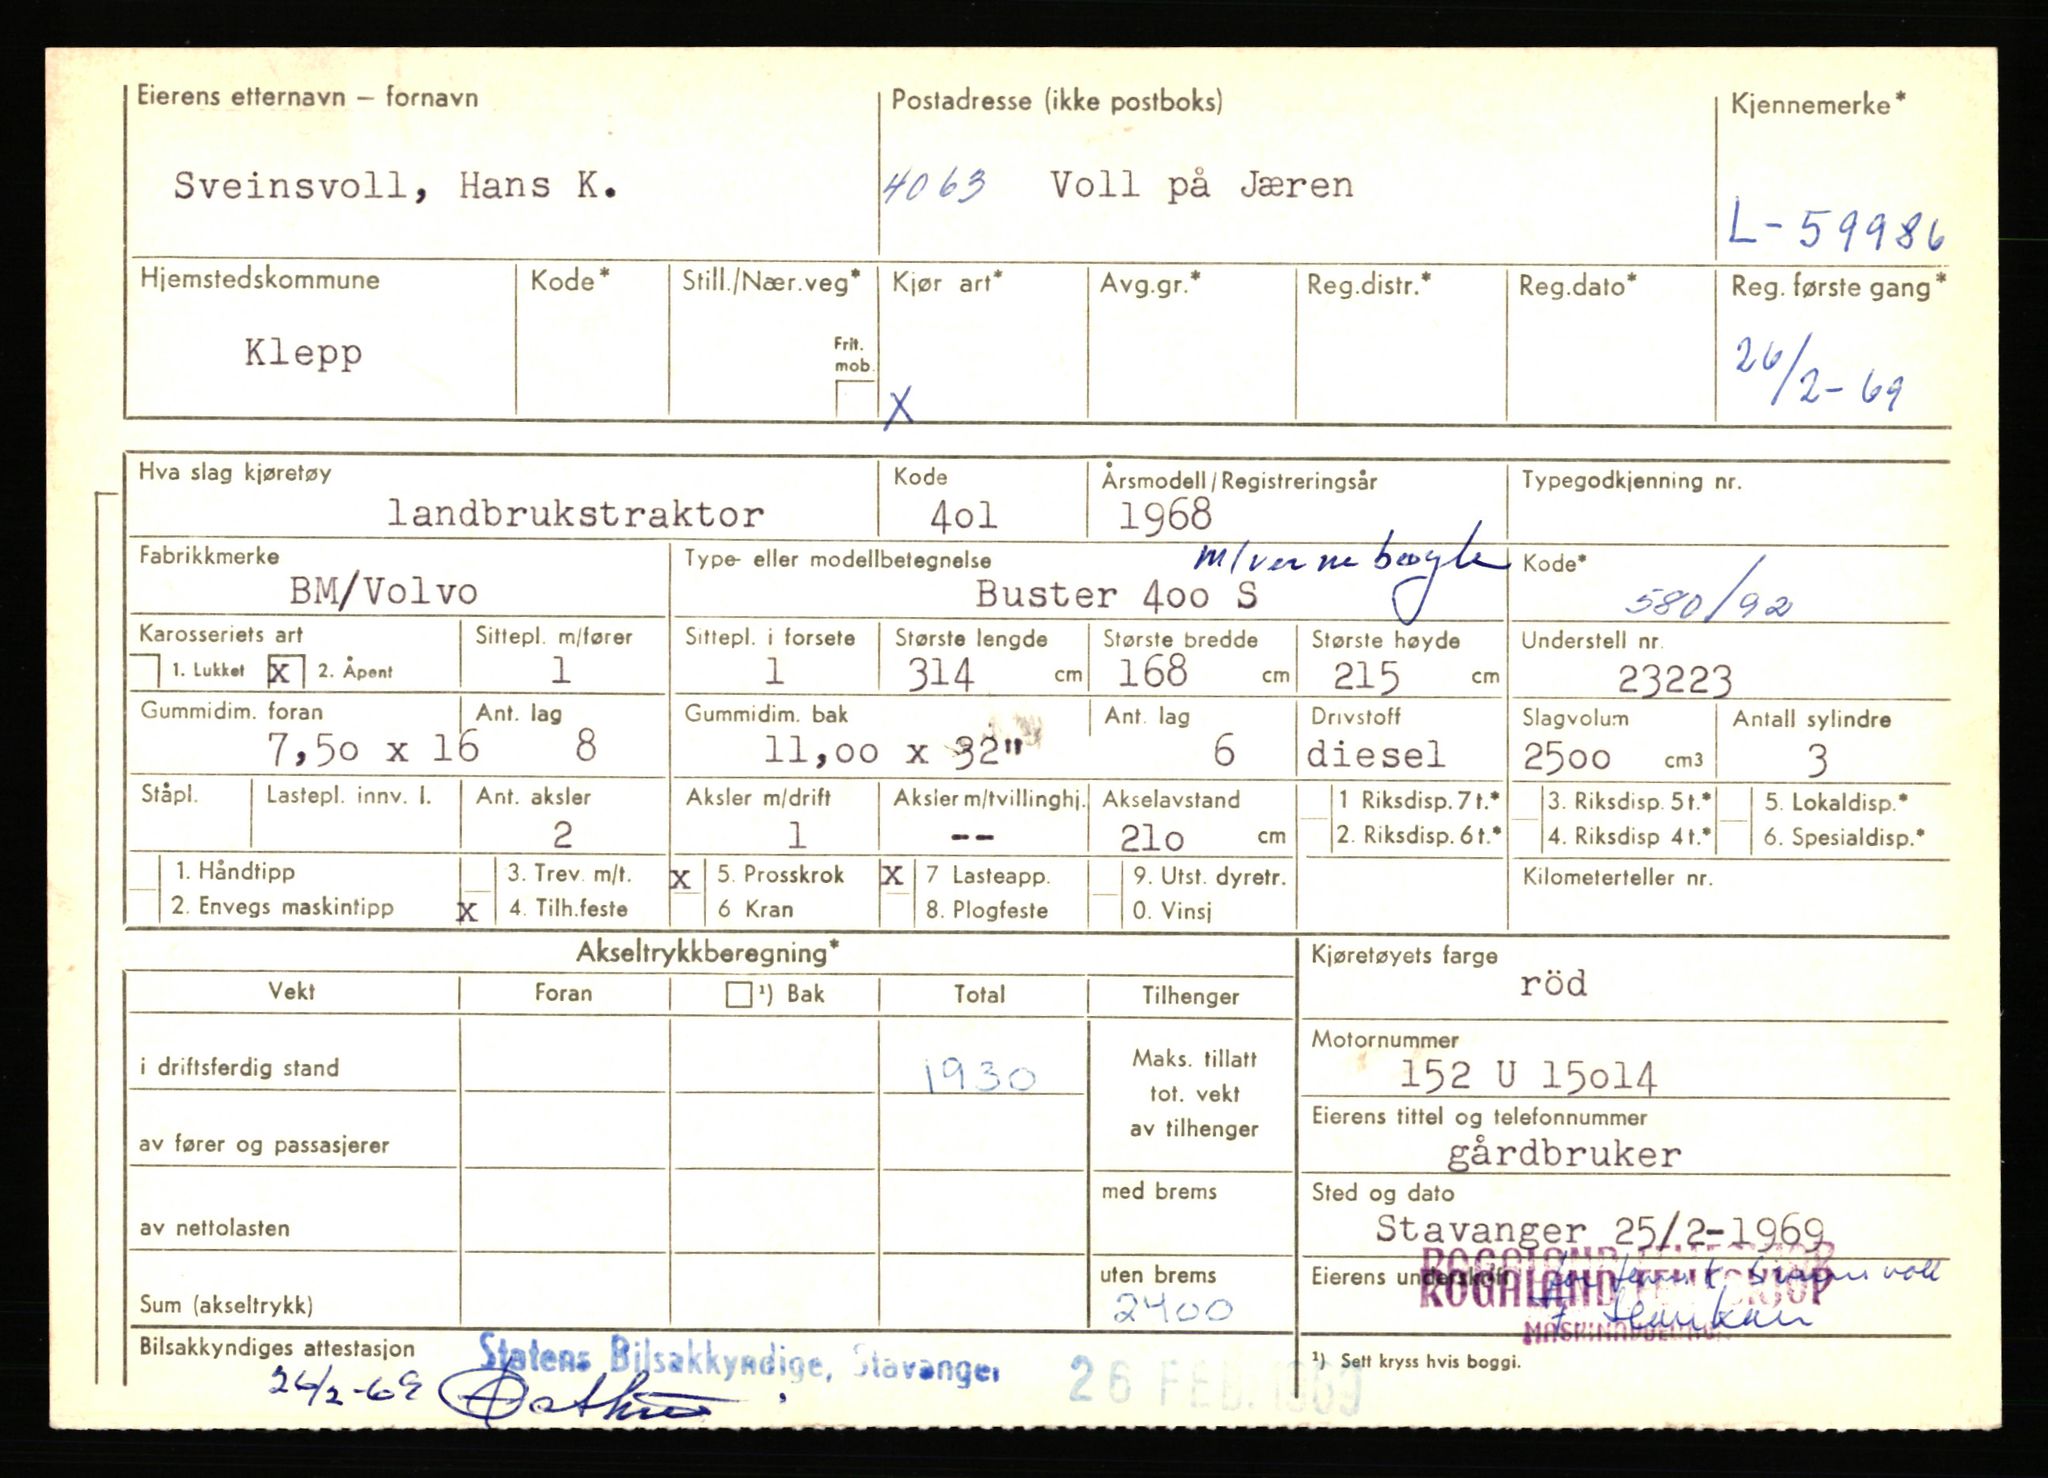 Eierens etternavn – fornavn Postadresse (ikke postboks) Kjennemerke*
Sveinsvoll, Hans K. 4063 Voll på Jæren L-59986
Hjemstedskommune Kode* Still./Nær.veg* Kjør art* Avg.gr.* Reg.distr.* Reg.dato* Reg. første gang*
Klepp Frit. mob. X 26/2-69
Hva slag kjøretøy Kode Årsmodell/Registreringsår Typegodkjenning nr.
landbrukstraktor 4o1 1968
Fabrikkmerke Type- eller modellbetegnelse m/vernebøyle Kode*
BM/Volvo Buster 4oo S 580/92
Karosseriets art Sittepl. m/fører Sittepl. i forsete Største lengde Største bredde Største høyde Understell nr.
1. Lukket x 2. Åpent 1 1 314 cm 168 cm 215 cm 23223
Gummidim. foran Ant. lag Gummidim. bak Ant. lag Drivstoff Slagvolum Antall sylindre
7,5o x 16 8 11,oo x 32" 6 diesel 25oo cm3 3
Ståpl. Lastepl. innv. l. Ant. aksler Aksler m/drift Aksler m/tvillinghj. Akselavstand 1 Riksdisp. 7 t.* 3. Riksdisp. 5 t.* 5. Lokaldisp.*
2 1 -- 21o cm 2. Riksdisp. 6 t.* 4. Riksdisp 4 t.* 6. Spesialdisp.*
1. Håndtipp 3. Trev. m/t. x 5. Prosskrok x 7 Lasteapp. 9. Utst. dyretr. Kilometerteller nr.
2. Envegs maskintipp x 4. Tilh.feste 6 Kran 8. Plogfeste 0. Vinsj
Akseltrykkberegning* Kjøretøyets farge
Vekt Foran ¹) Bak Total Tilhenger röd
Motornummer
i driftsferdig stand 1930 Maks. tillatt tot. vekt av tilhenger 152 U 15o14
Eierens tittel og telefonnummer
av fører og passasjerer gårdbruker
med brems Sted og dato
av nettolasten Stavanger 25/2-1969
uten brems Eierens underskrift
ROGALAND FELLESKJØP
Sum (akseltrykk) 2400
MASKINAVDELINGEN
Bilsakkyndiges attestasjon Statens Bilsakkyndige, Stavanger ¹) Sett kryss hvis boggi.
26/2-69 26 FEB. 1969